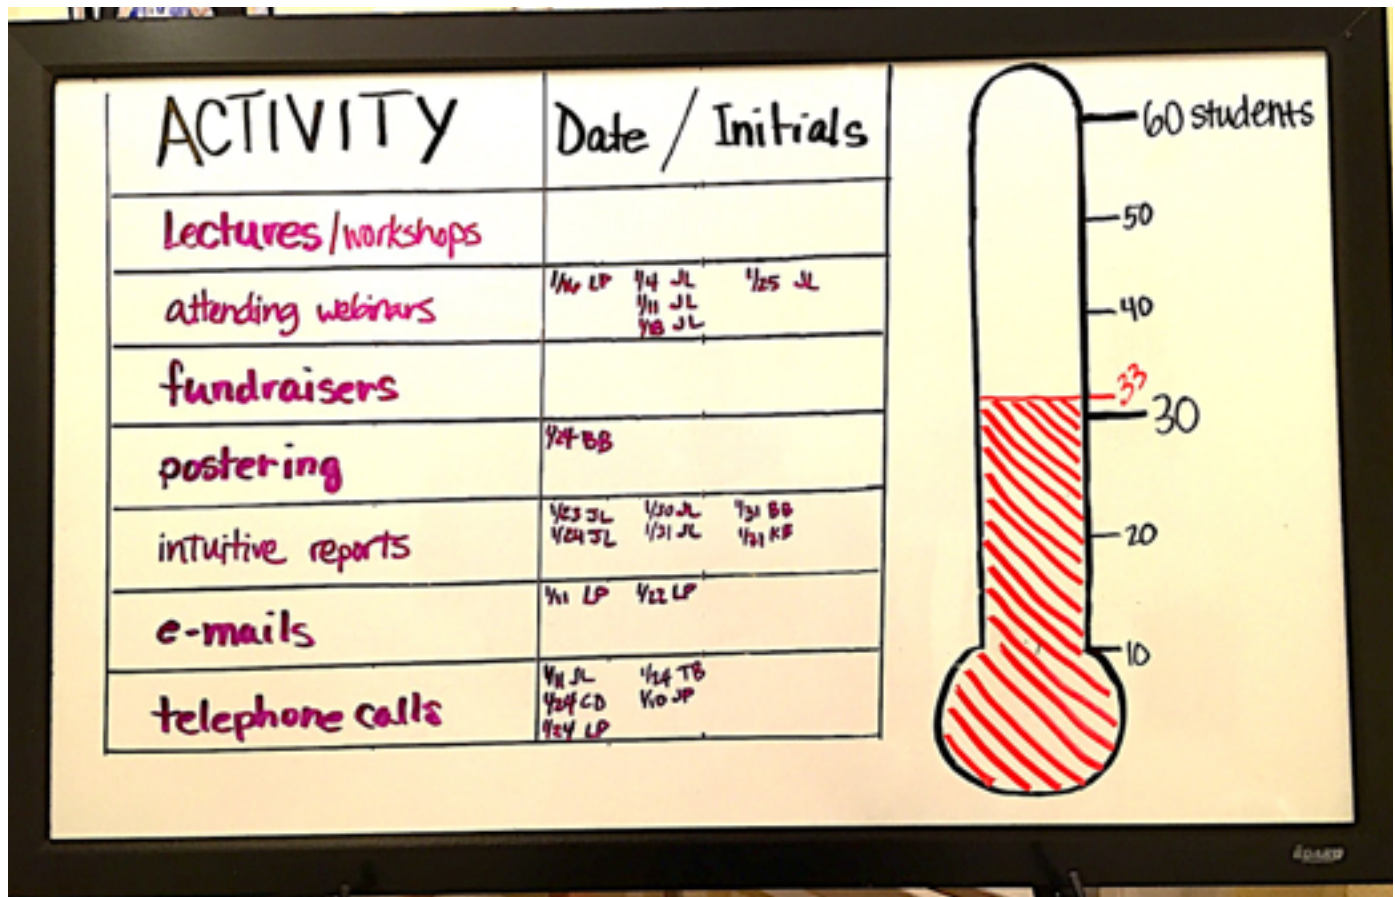 ACTIVITY Date / Initials
Lectures/workshops
attending webinars 1/16 LP 1/4 JL 1/25 JL
1/11 JL
1/18 JL
fundraisers
postering 1/24 BB
intuitive reports 1/23 JL 1/30 JL 1/31 BB
1/24 JL 1/31 JL 1/31 KB
e-mails 1/11 LP 1/22 LP
telephone calls 1/11 JL 1/24 TB
1/24 CD 1/10 JP
1/24 LP
60 students
50
40
33
30
20
10